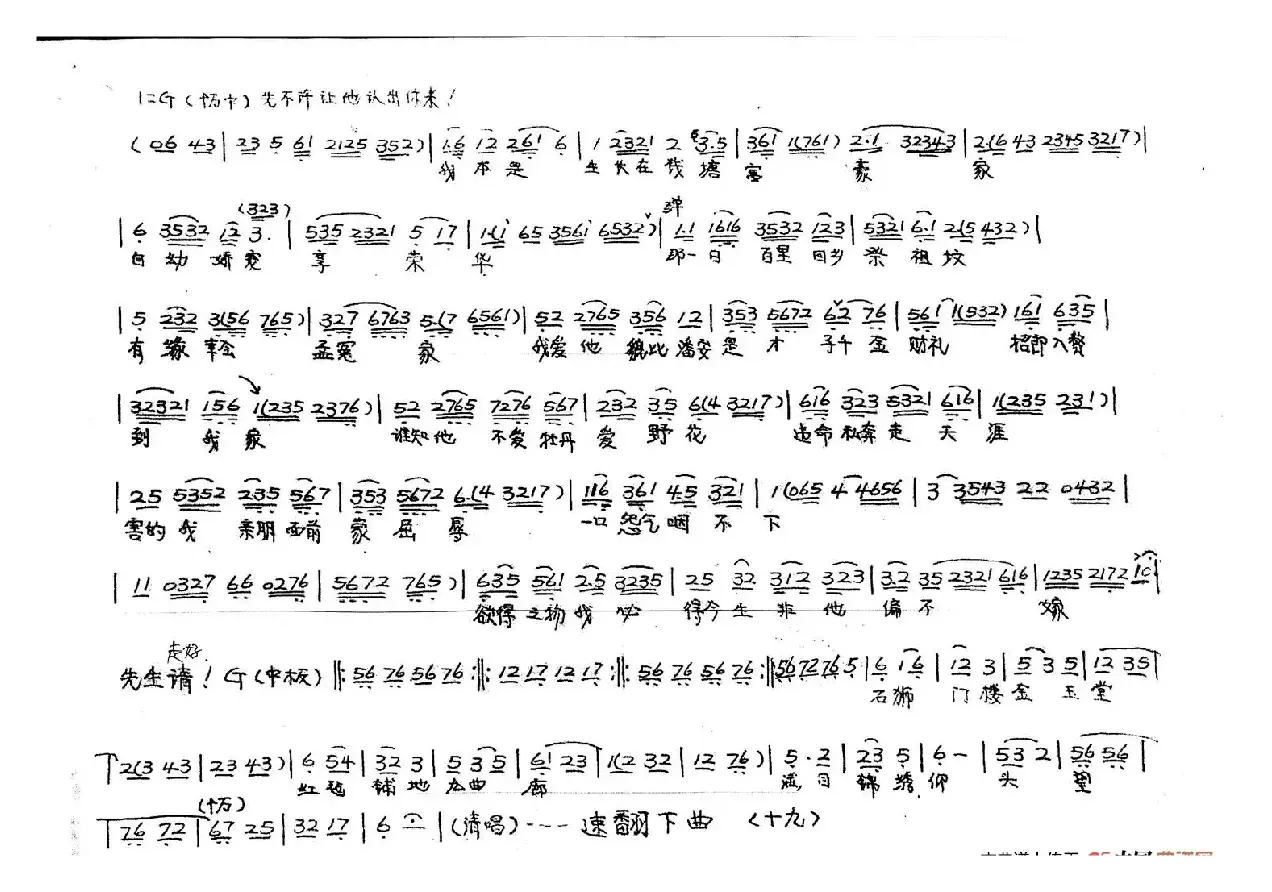 先不许让他认出你来!
(06 43 | 23 5 61 2125 352) | 1·6 12 261 6 | 1 2321 2 3·5 | 361 1(761) 2·1 32343 | 2(6 43 2345 3217) |
我本是 生长在钱塘富豪家
(323)
| 6 3532 12 3· | 535 2321 5 17 | 1(i 65 3561 6532) | 1·1 1616 3532 123 | 5321 6·1 2(5 432) |
自幼娇宠享荣华 那一日 百里回乡祭祖坟
| 5 232 3(56 765) | 327 6763 5·(7 6561) | 52 2765 356 12 | 353 5672 62 76 | 561 1(532) 161 635 |
有 孟冤家 我爱他貌比潘安是才子千金财礼招郎入赘
| 32321 156 1(235 2376) | 52 2765 7276 567 | 232 35 6(4 3217) | 616 323 5321 616 | 1(235 231) |
到我家 谁知他不爱牡丹爱野花 逃命私奔走天涯
| 25 5352 235 567 | 353 5672 6·(4 3217) | 116 361 45 321 | 1(065 4 4656 | 3 3543 22 0432 |
害的我亲朋面前蒙屈辱 一口怨气咽不下
| 11 0327 66 0276 | 5672 765) | 635 561 2·5 3235 | 25 32 312 323 | 3·2 35 2321 616 | 1235 2172 10 |
欲得之物我必得今生非他偏不嫁
走好
先生请! G(中板) ‖: 56 76 56 76 :‖: 12 17 12 17 :‖: 56 76 56 76 :‖ 5672 76 5 | 6 1 6 | 12 3 | 5 3 5 | 12 35 |
石狮门楼金玉堂
| 2(3 43 | 23 43) | 6 54 | 32 3 | 5 3 5 | 61 23 | 1(2 32 | 12 76) | 5·2 | 23 5 | 6 - | 53 2 | 56 56 |
红毯铺地 曲廊 满目锦绣仰头望
(十万)
| 76 72 | 67 25 | 32 17 | 6 - | (清唱)---- 速翻下曲 (十九)